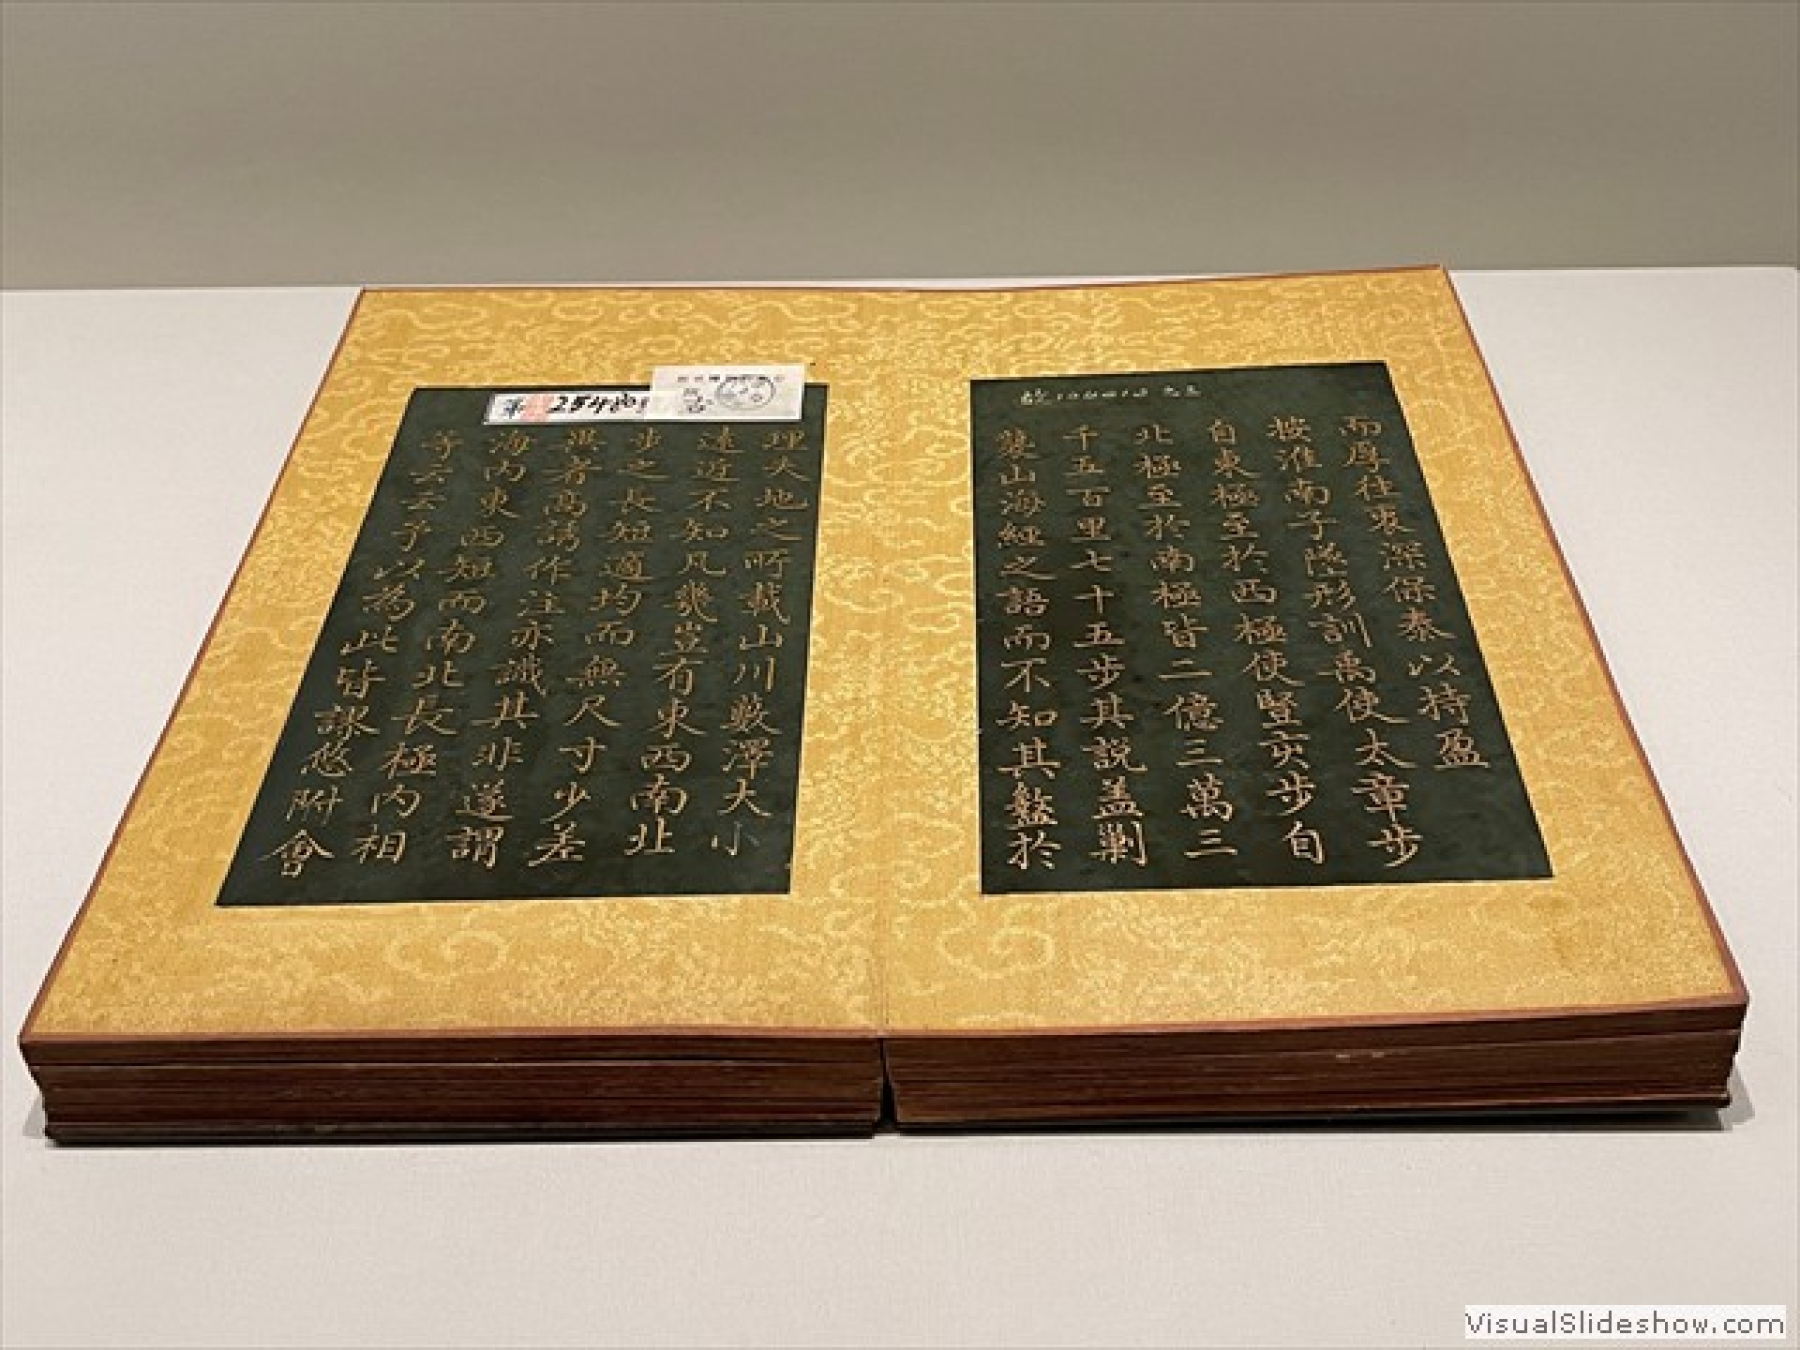 而厚往衷深保泰以持盈
按淮南子墬形訓禹使太章步
自東極至於西極使豎亥步自
北極至於南極皆二億三萬三
千五百里七十五步其說蓋剿
襲山海經之語而不知其盭於
理夫地之所載山川藪澤大小
遠近不知凡幾豈有東西南北
步之長短適均而無尺寸少差
異者高誘作注亦譏其非遂謂
海內東西短而南北長極內相
等云云予以為此皆謬悠附會
第 25480
VisualSlideshow.com